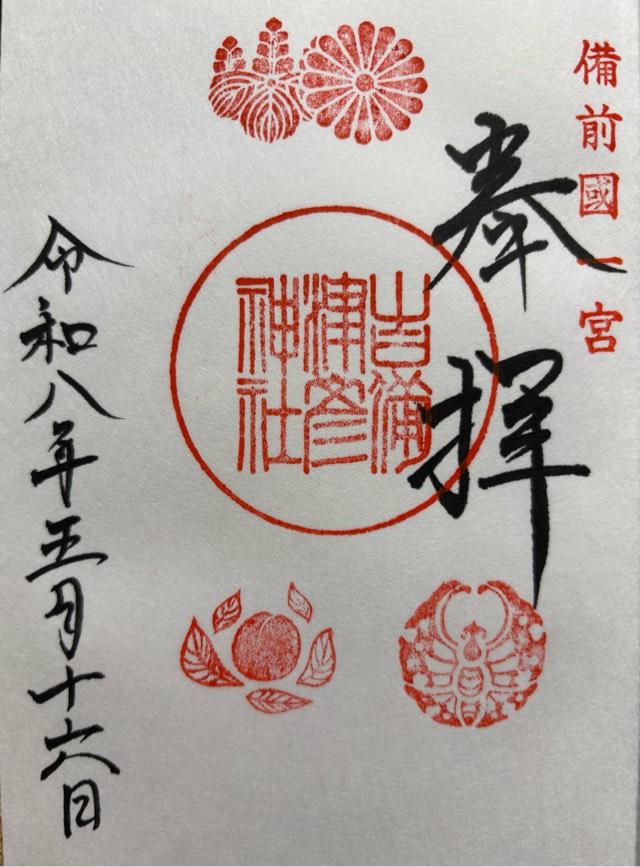 備前國一宮
奉拝
吉備
津彦
神社
令和八年五月十六日